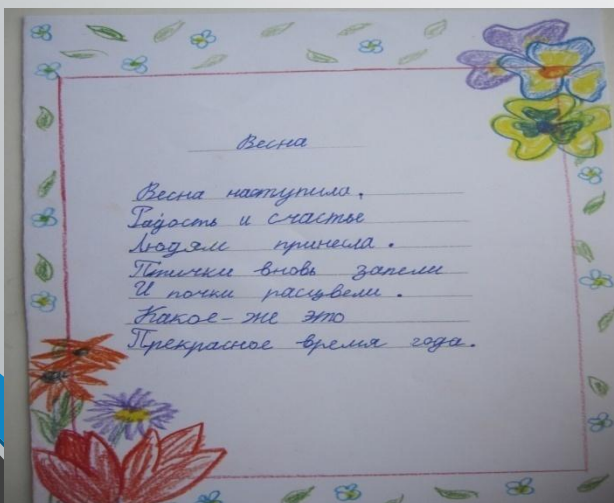 Весна
Весна наступила,
Радость и счастье
Людям принесла.
Птички вновь запели
И почки расцвели.
Какое-же это
Прекрасное время года.